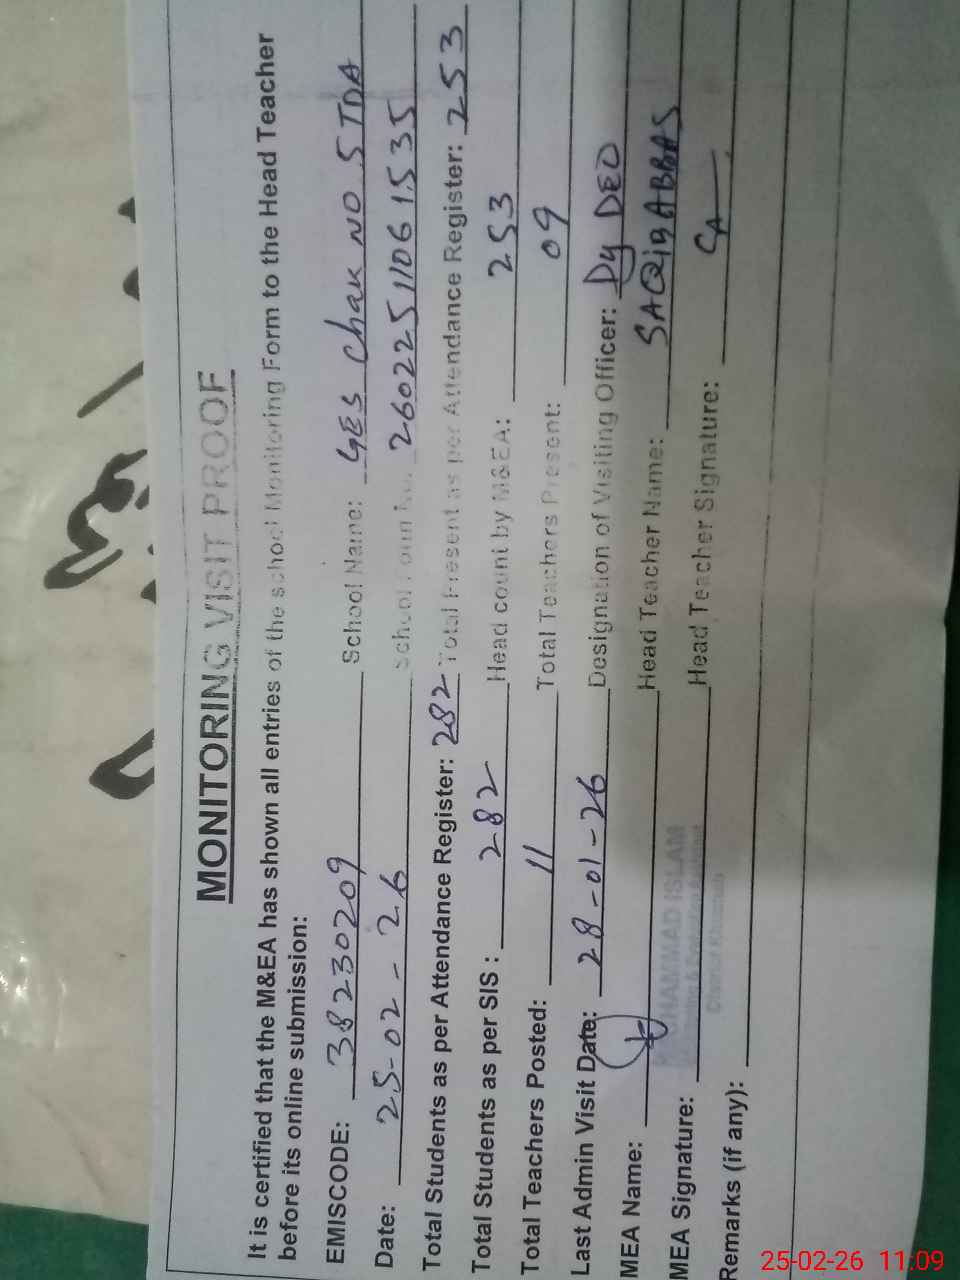 MONITORING VISIT PROOF
It is certified that the M&EA has shown all entries of the school Monitoring Form to the Head Teacher
before its online submission:
EMISCODE: 38230209 School Name: GES Chak NO 5 TDA
Date: 25-02-26 School 26022511061535
Total Students as per Attendance Register: 282 Total Present as per Attendance Register: 253
Total Students as per SIS: 282 Head count by M&EA: 253
Total Teachers Posted: 11 Total Teachers Present: 09
Last Admin Visit Date: 28-01-26 Designation of Visiting Officer: Dy DEO
MEA Name: Head Teacher Name: SAQiB ABBAS
MUHAMMAD ISLAM
MEA Signature: Head Teacher Signature: SA
Remarks (if any):
25-02-26 11:09